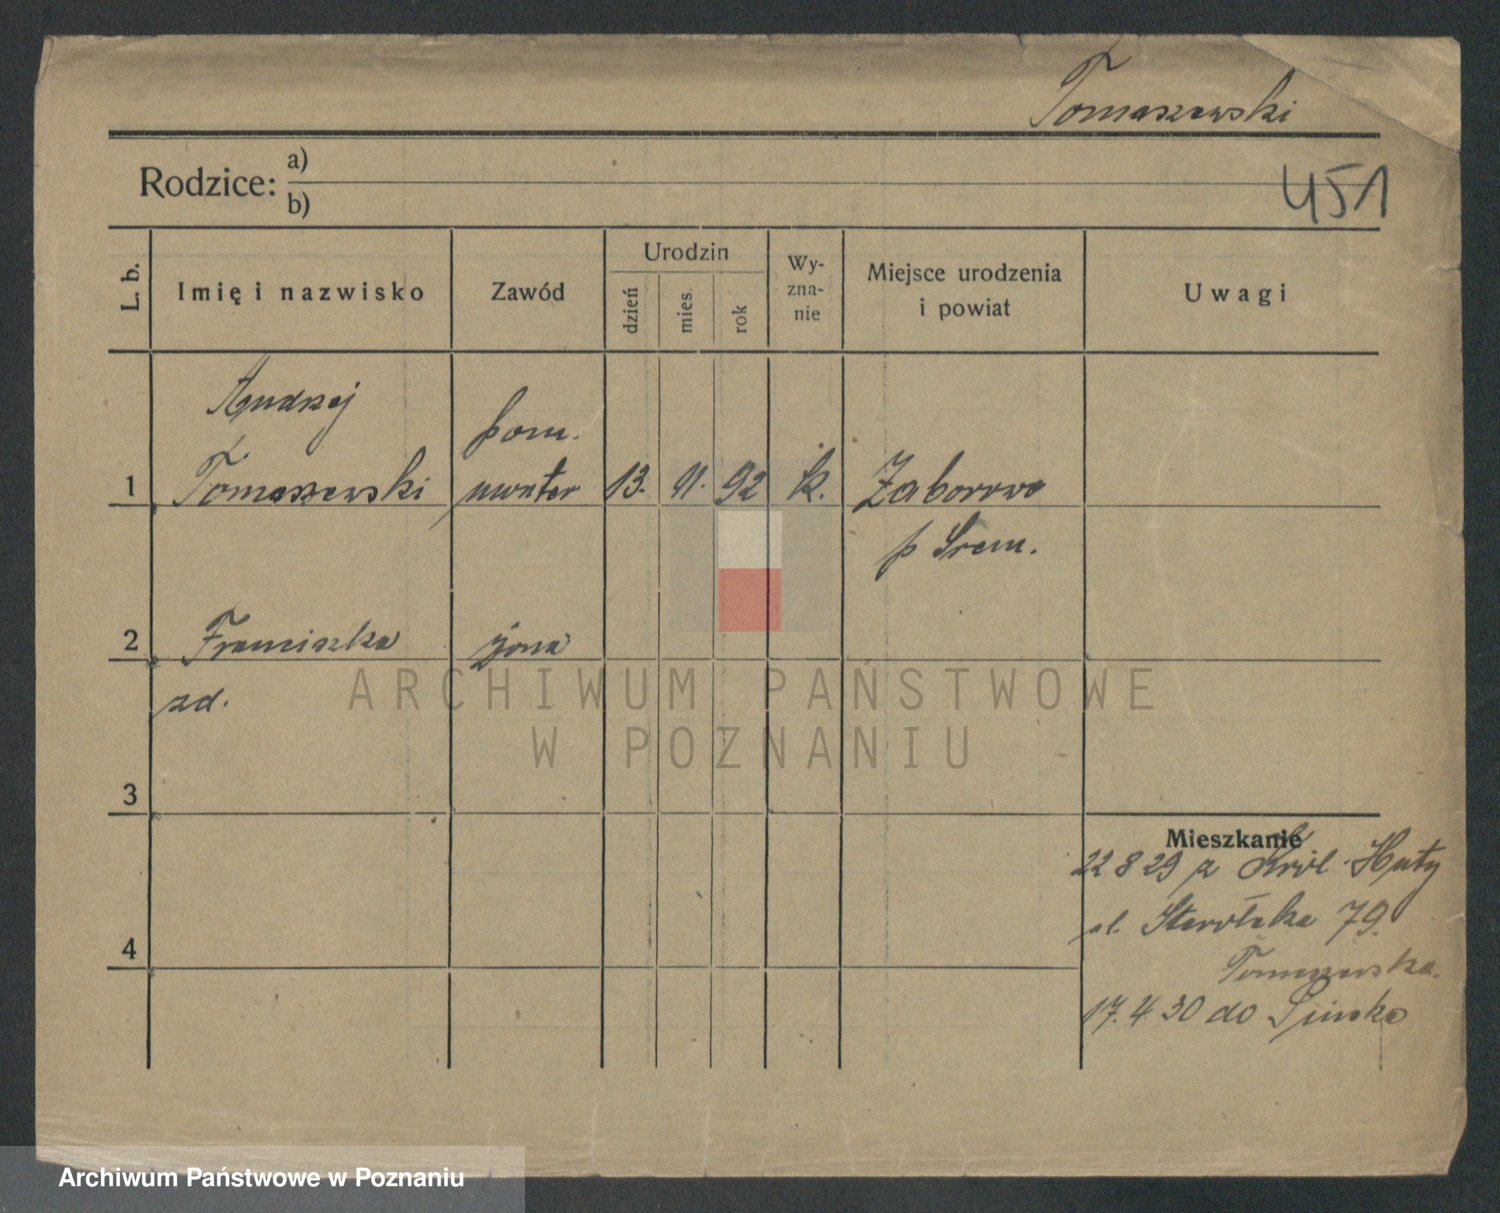 Tomaszewski
451
Rodzice: a)
b)
L. b.
Imię i nazwisko
Zawód
Urodzin
dzień
mies.
rok
Wy-
zna-
nie
Miejsce urodzenia
i powiat
Uwagi
Andrzej
pom.
1 Tomaszewski monter 13. 11. 92 k. Zaborowo
p Śrem.
2 Franciszka żona
zd.
3
Mieszkanie
22 8 29 z Król Huty
ul. Starołęka 79.
4
Tomaszewska.
17.4.30 do
ARCHIWUM PAŃSTWOWE
W POZNANIU
Archiwum Państwowe w Poznaniu